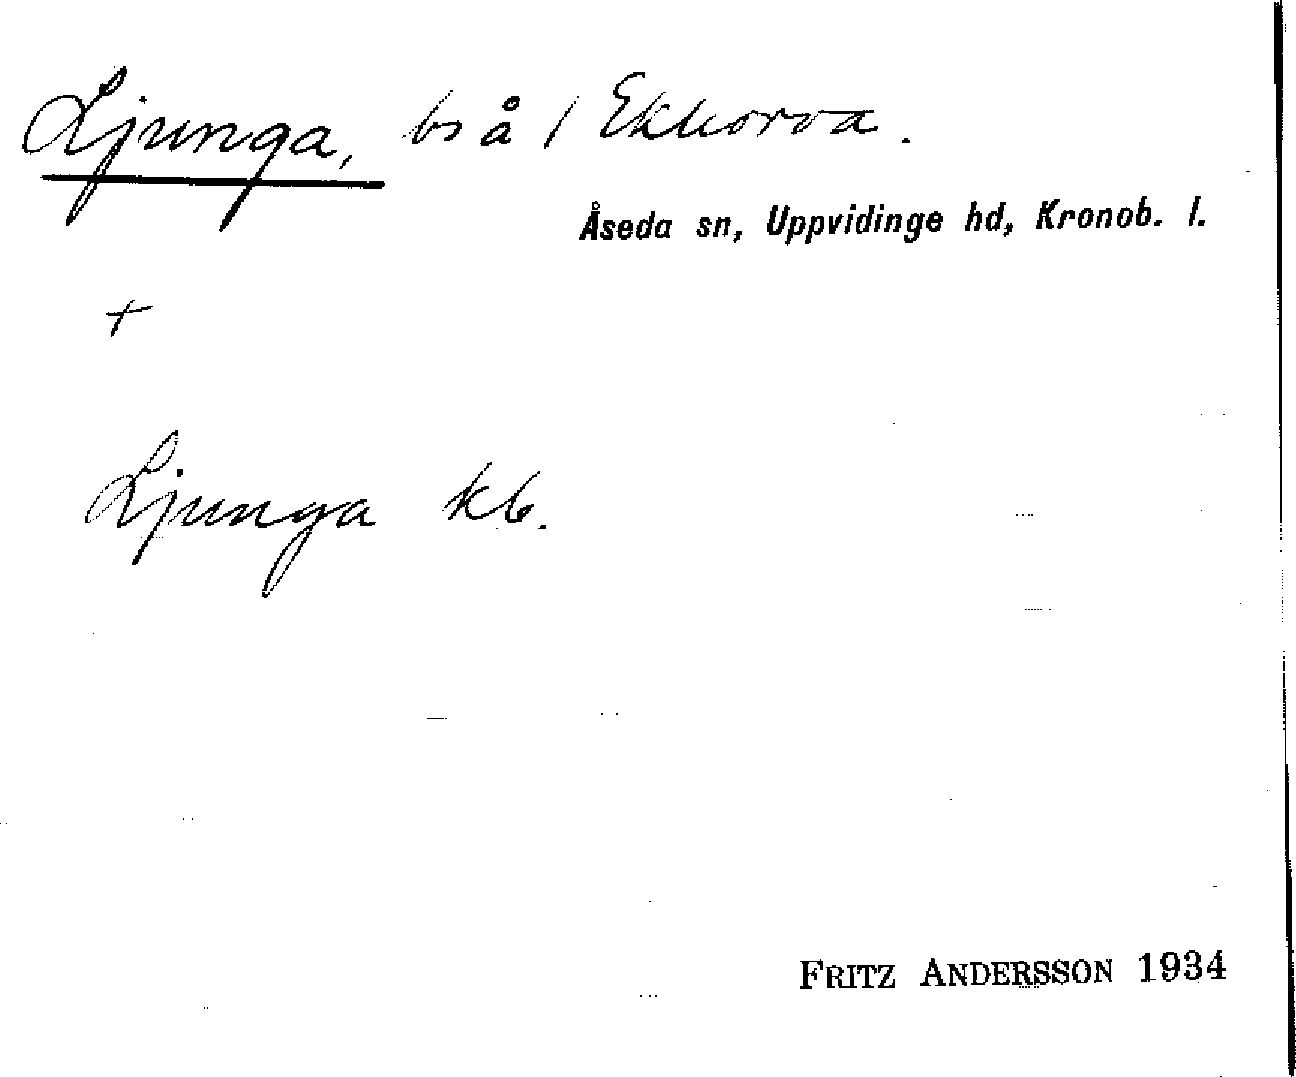 Ljunga, bs å 1 Ekhorva.
Åseda sn, Uppvidinge hd, Kronob. l.
+
Ljunga kb.
FRITZ ANDERSSON 1934